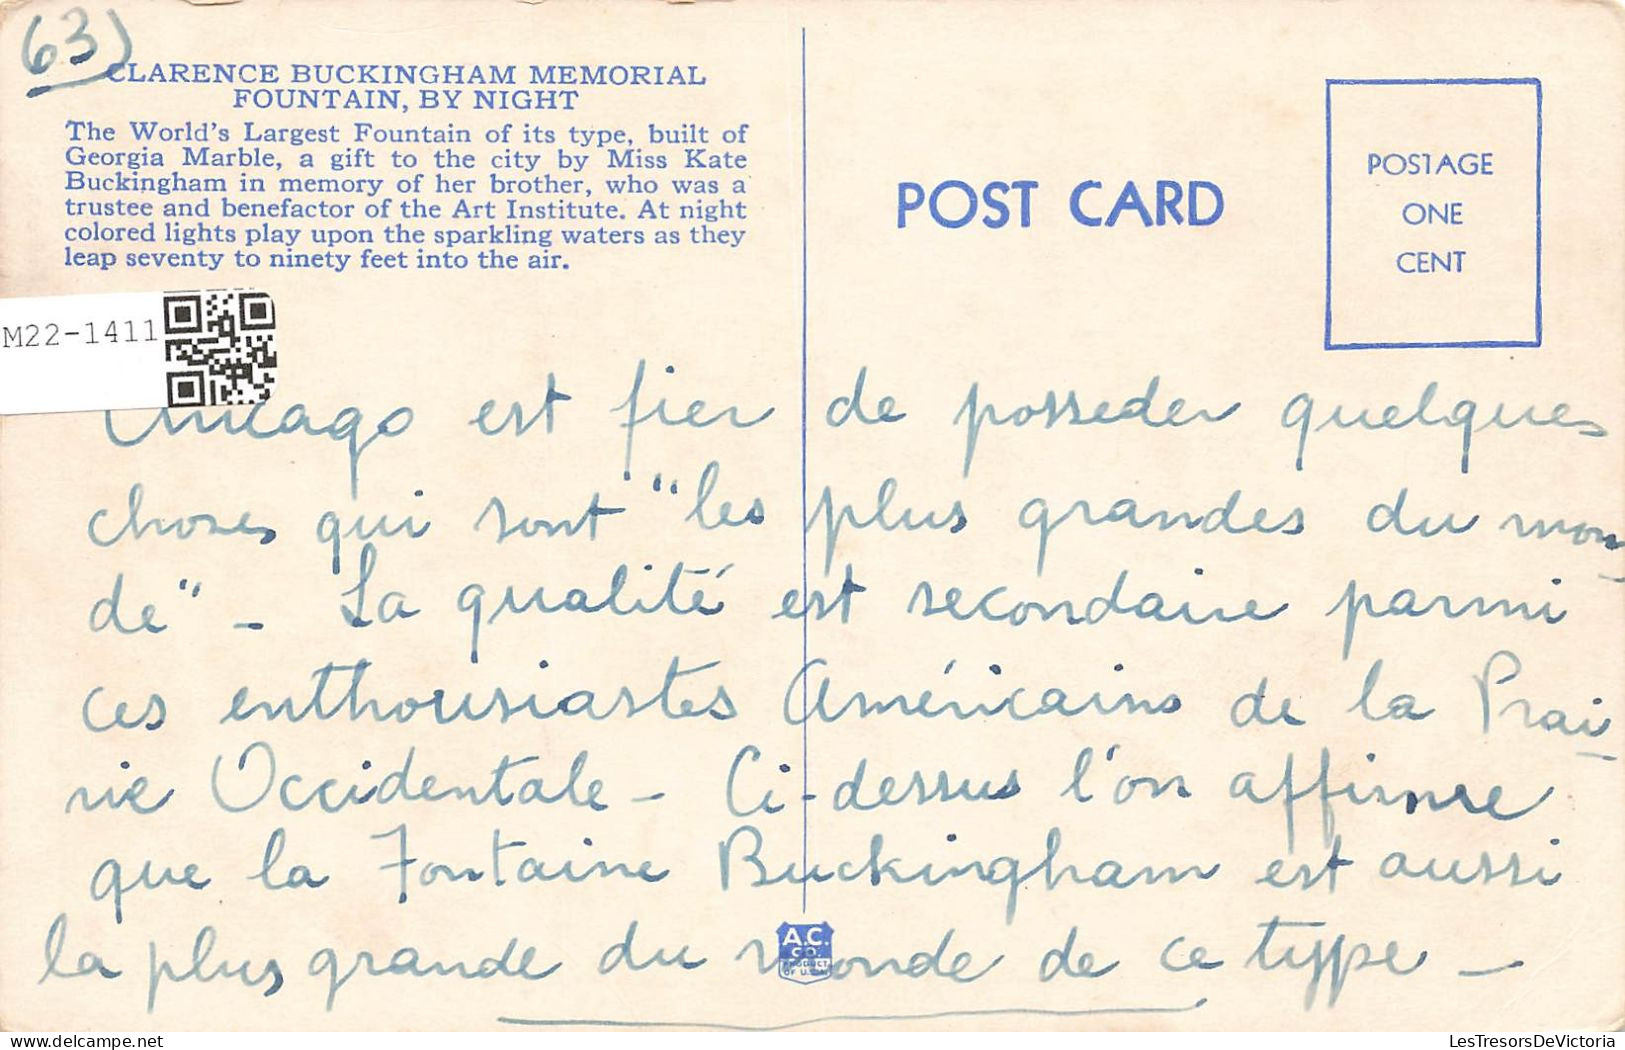 63)
CLARENCE BUCKINGHAM MEMORIAL
FOUNTAIN, BY NIGHT
The World's Largest Fountain of its type, built of
Georgia Marble, a gift to the city by Miss Kate
Buckingham in memory of her brother, who was a
trustee and benefactor of the Art Institute. At night
colored lights play upon the sparkling waters as they
leap seventy to ninety feet into the air.
POST CARD
POSTAGE
ONE
CENT
M22-1411
Chicago est fier de posseder quelques
choses qui sont "les plus grandes du mon
de" - La qualité est secondaire parmi
ces enthousiastes Américains de la Prai-
rie Occidentale - Ci-dessus l'on affirme
que la Fontaine Buckingham est aussi
la plus grande du monde de ce type -
A.C.
CO.
PRODUCT
OF U.S.A.
LesTresorsDeVictoria